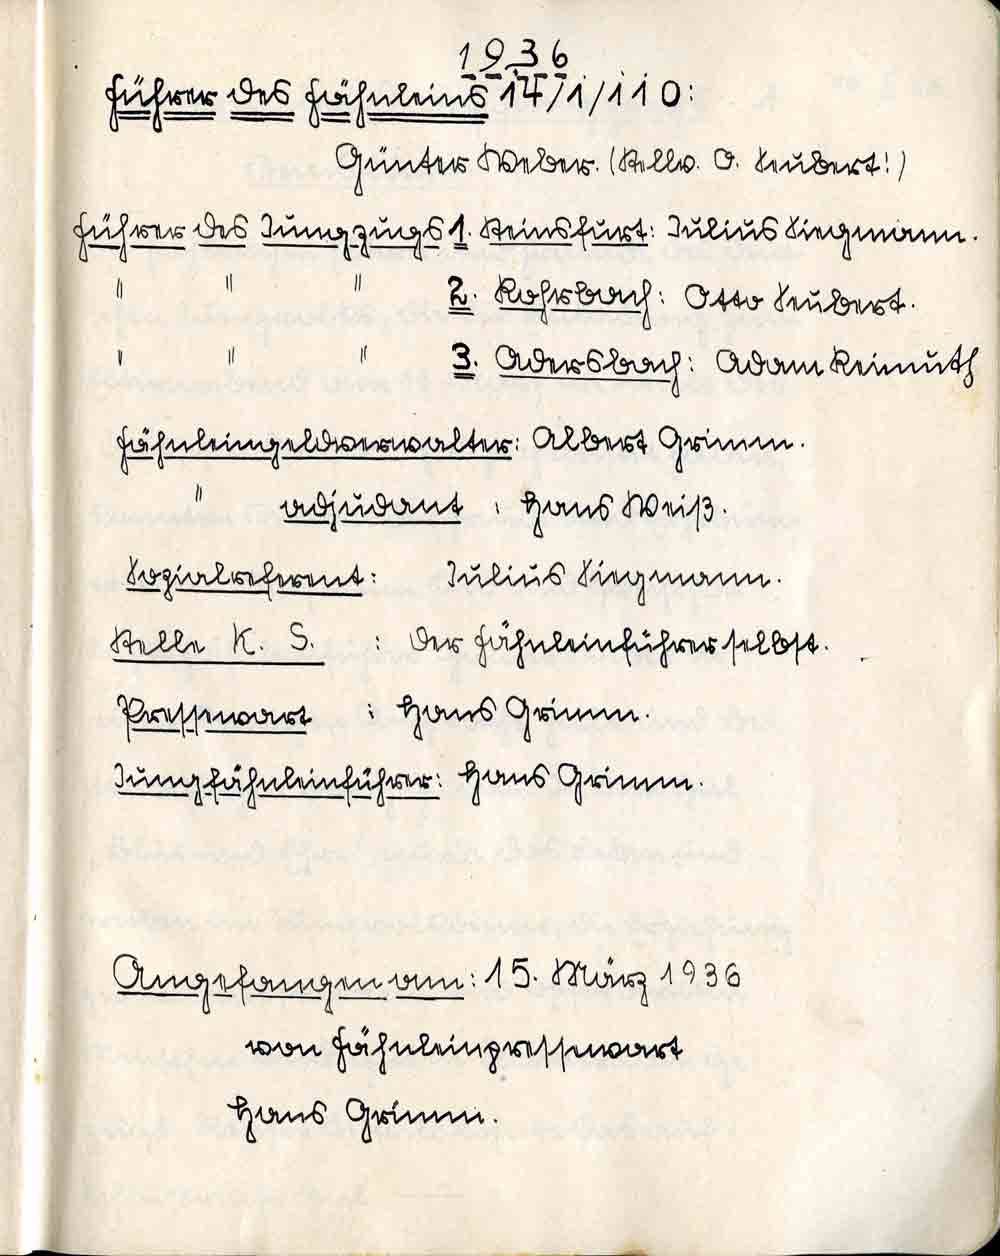 1936
Führer des Fähnleins 17/1/110:
Günter Weber. (Stellv. O. Seubert!)
Führer des Jungzugs 1. Steinsfurt: Julius Siegmann.
" " " 2. Rohrbach: Otto Seubert.
" " " 3. Adersbach: Adam Reimuth
Fähnleingeldverwalter: Albert Grimm.
" adjudant : Hans Weiß.
Sozialreferent: Julius Siegmann.
Stelle K. S. : Der Fähnleinführer selbst.
Pressewart : Hans Grimm.
Jungfähnleinführer: Hans Grimm.
Angefangen am: 15. März 1936
von Fähnleinpressewart
Hans Grimm.